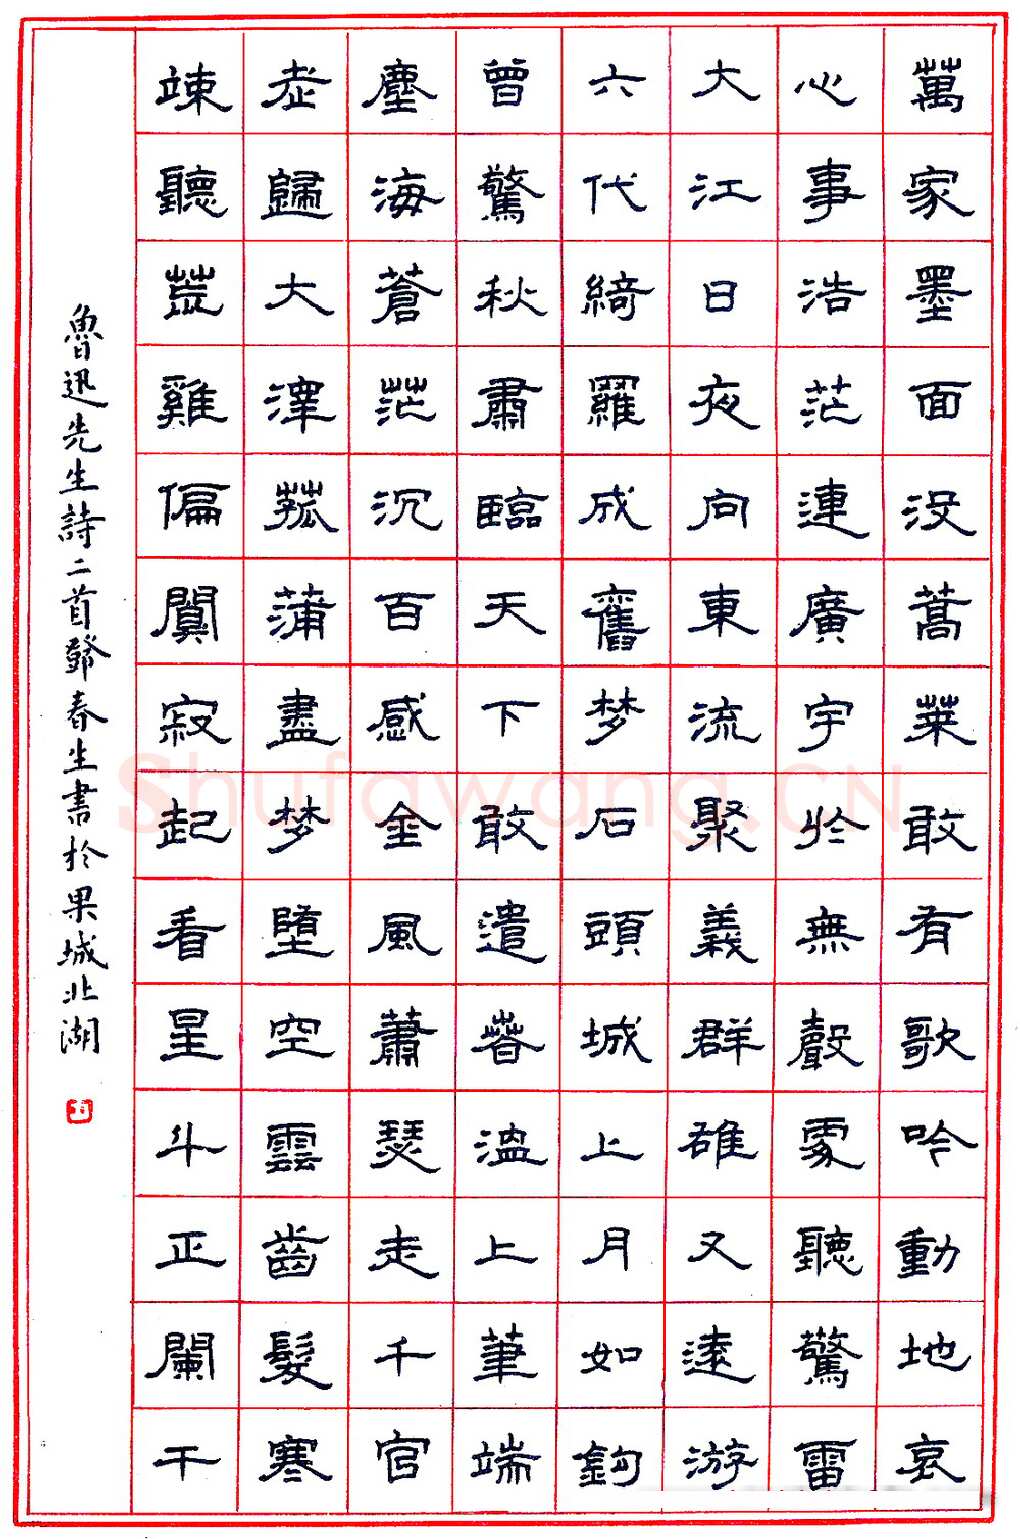 萬家墨面没蒿萊敢有歌吟動地哀
心事浩茫連廣宇於無聲處聽驚雷
大江日夜向東流聚義群雄又遠游
六代綺羅成舊梦石頭城上月如鈎
曾驚秋肅臨天下敢遣春温上筆端
塵海蒼茫沉百感金風蕭瑟走千官
老歸大澤菰蒲盡梦墮空雲齒髮寒
竦聽荒雞偏闃寂起看星斗正闌干
魯迅先生詩二首鄧春生書於果城北湖
Shufawang.CN